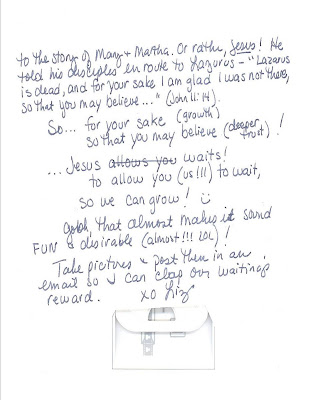 to the story of Mary & Martha. Or rather, Jesus! He
told his disciples en route to Lazarus - "Lazarus
is dead, and for your sake I am glad I was not there,
so that you may believe..." (John 11:14).
So... for your sake (growth)
so that you may believe (deeper trust)!
...Jesus allows you waits!
to allow you (us!!!) to wait,
so we can grow! ☺
Gosh, that almost makes it sound
FUN & desirable (almost!!! LOL)!
Take pictures & post them in an
email so I can clap our waiting
reward. xo Liz